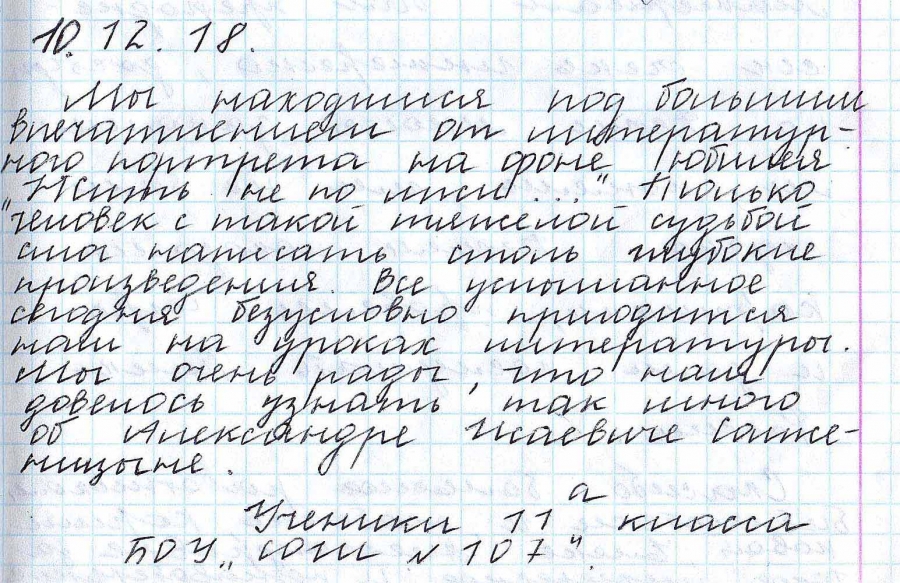 10.12.18.
Мы находимся под большим
впечатлением от литератур-
ного портрета на фоне юбилея
„Жить не по лжи..." Только
человек с такой тяжелой судьбой
смог написать столь глубокие
произведения. Все услышанное
сегодня безусловно пригодится
нам на уроках литературы.
Мы очень рады, что нам
довелось узнать так много
об Александре Исаевиче Солже-
ницыне.
Ученики 11 а класса
БОУ „СОШ № 107".